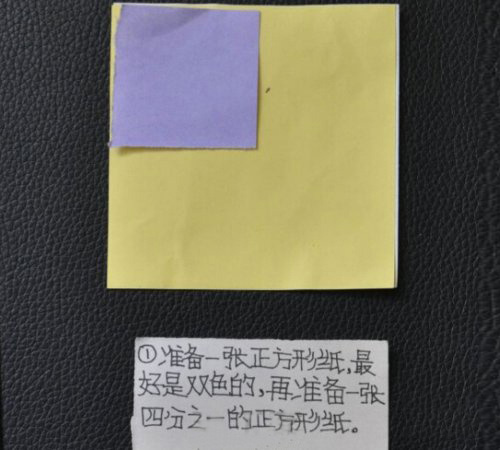 ①准备一张正方形纸,最
好是双色的,再准备一张
四分之一的正方形纸。